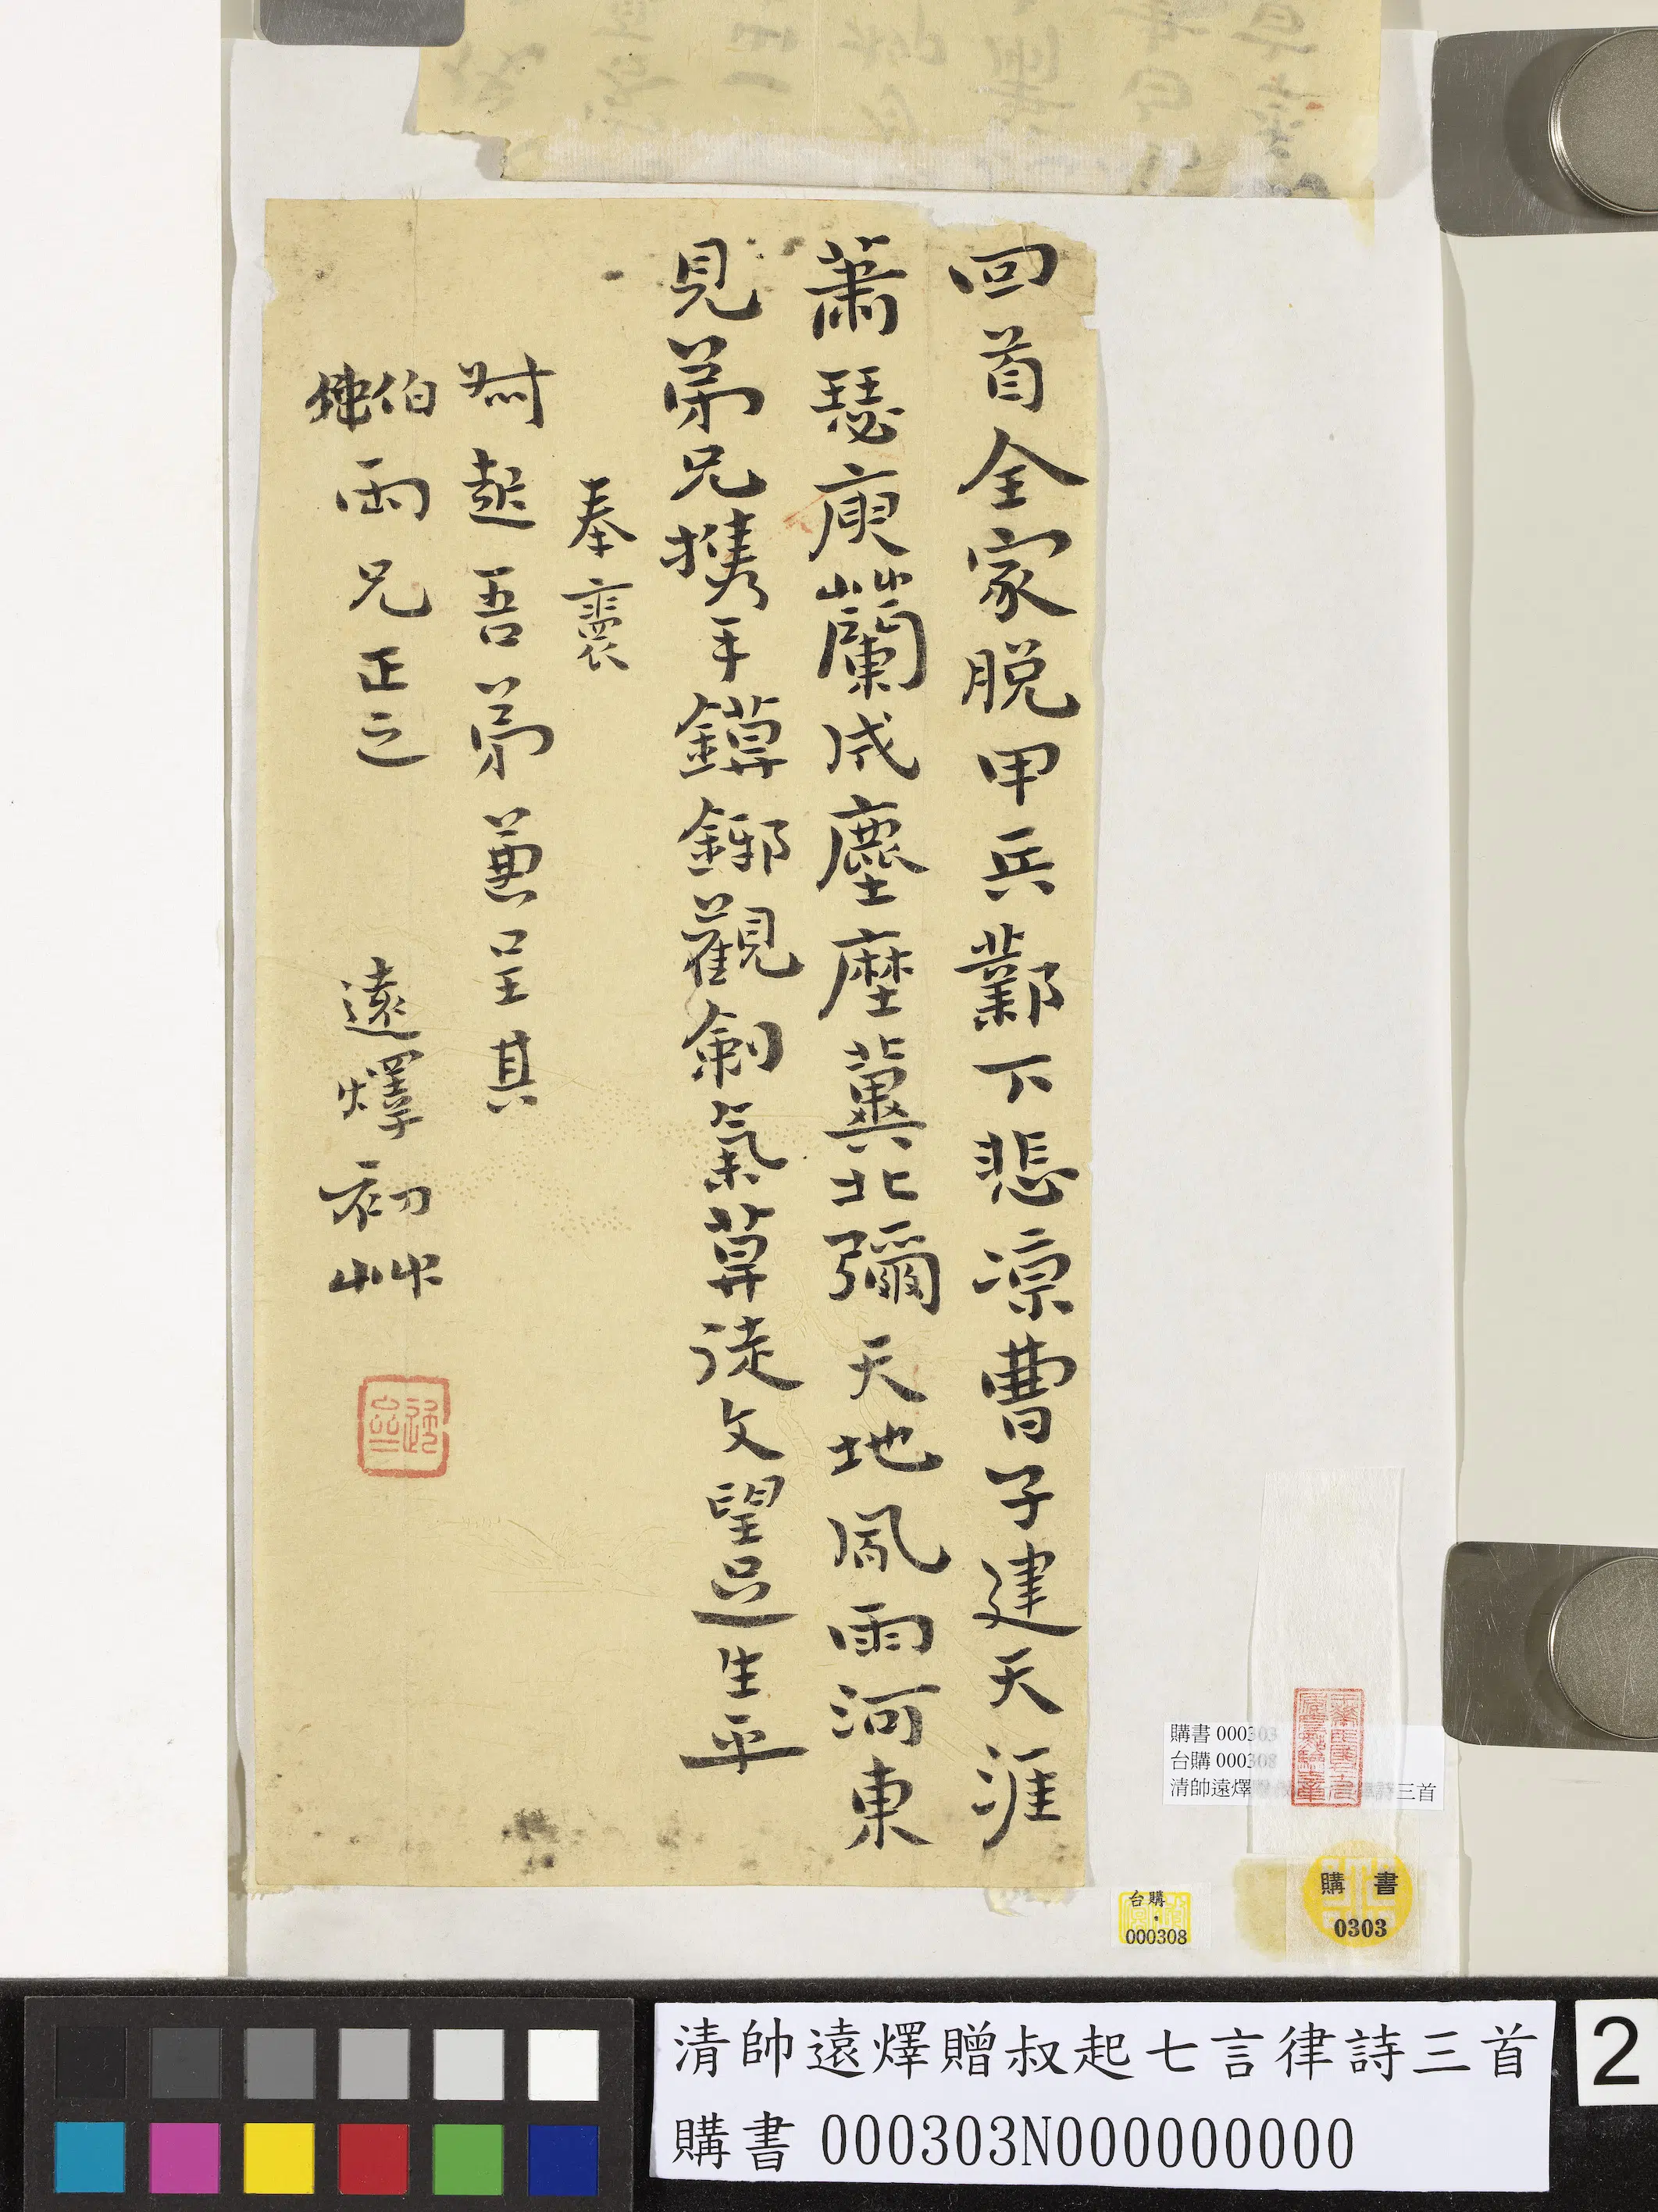 回首全家脱甲兵鄴下悲凉曹子建天涯
蕭瑟庾蘭成塵塺冀北彌天地風雨河東
見弟兄攜手鏌鋣觀劍氣莫徒文望足生平
奉褱
叔起吾弟兼呈其
伯仲兩兄正之 遠燡初艸
購書 000303
台購 000308
清帥遠燡 三首
台購
000308
購書
0303
清帥遠燡贈叔起七言律詩三首
購書 000303N000000000
2